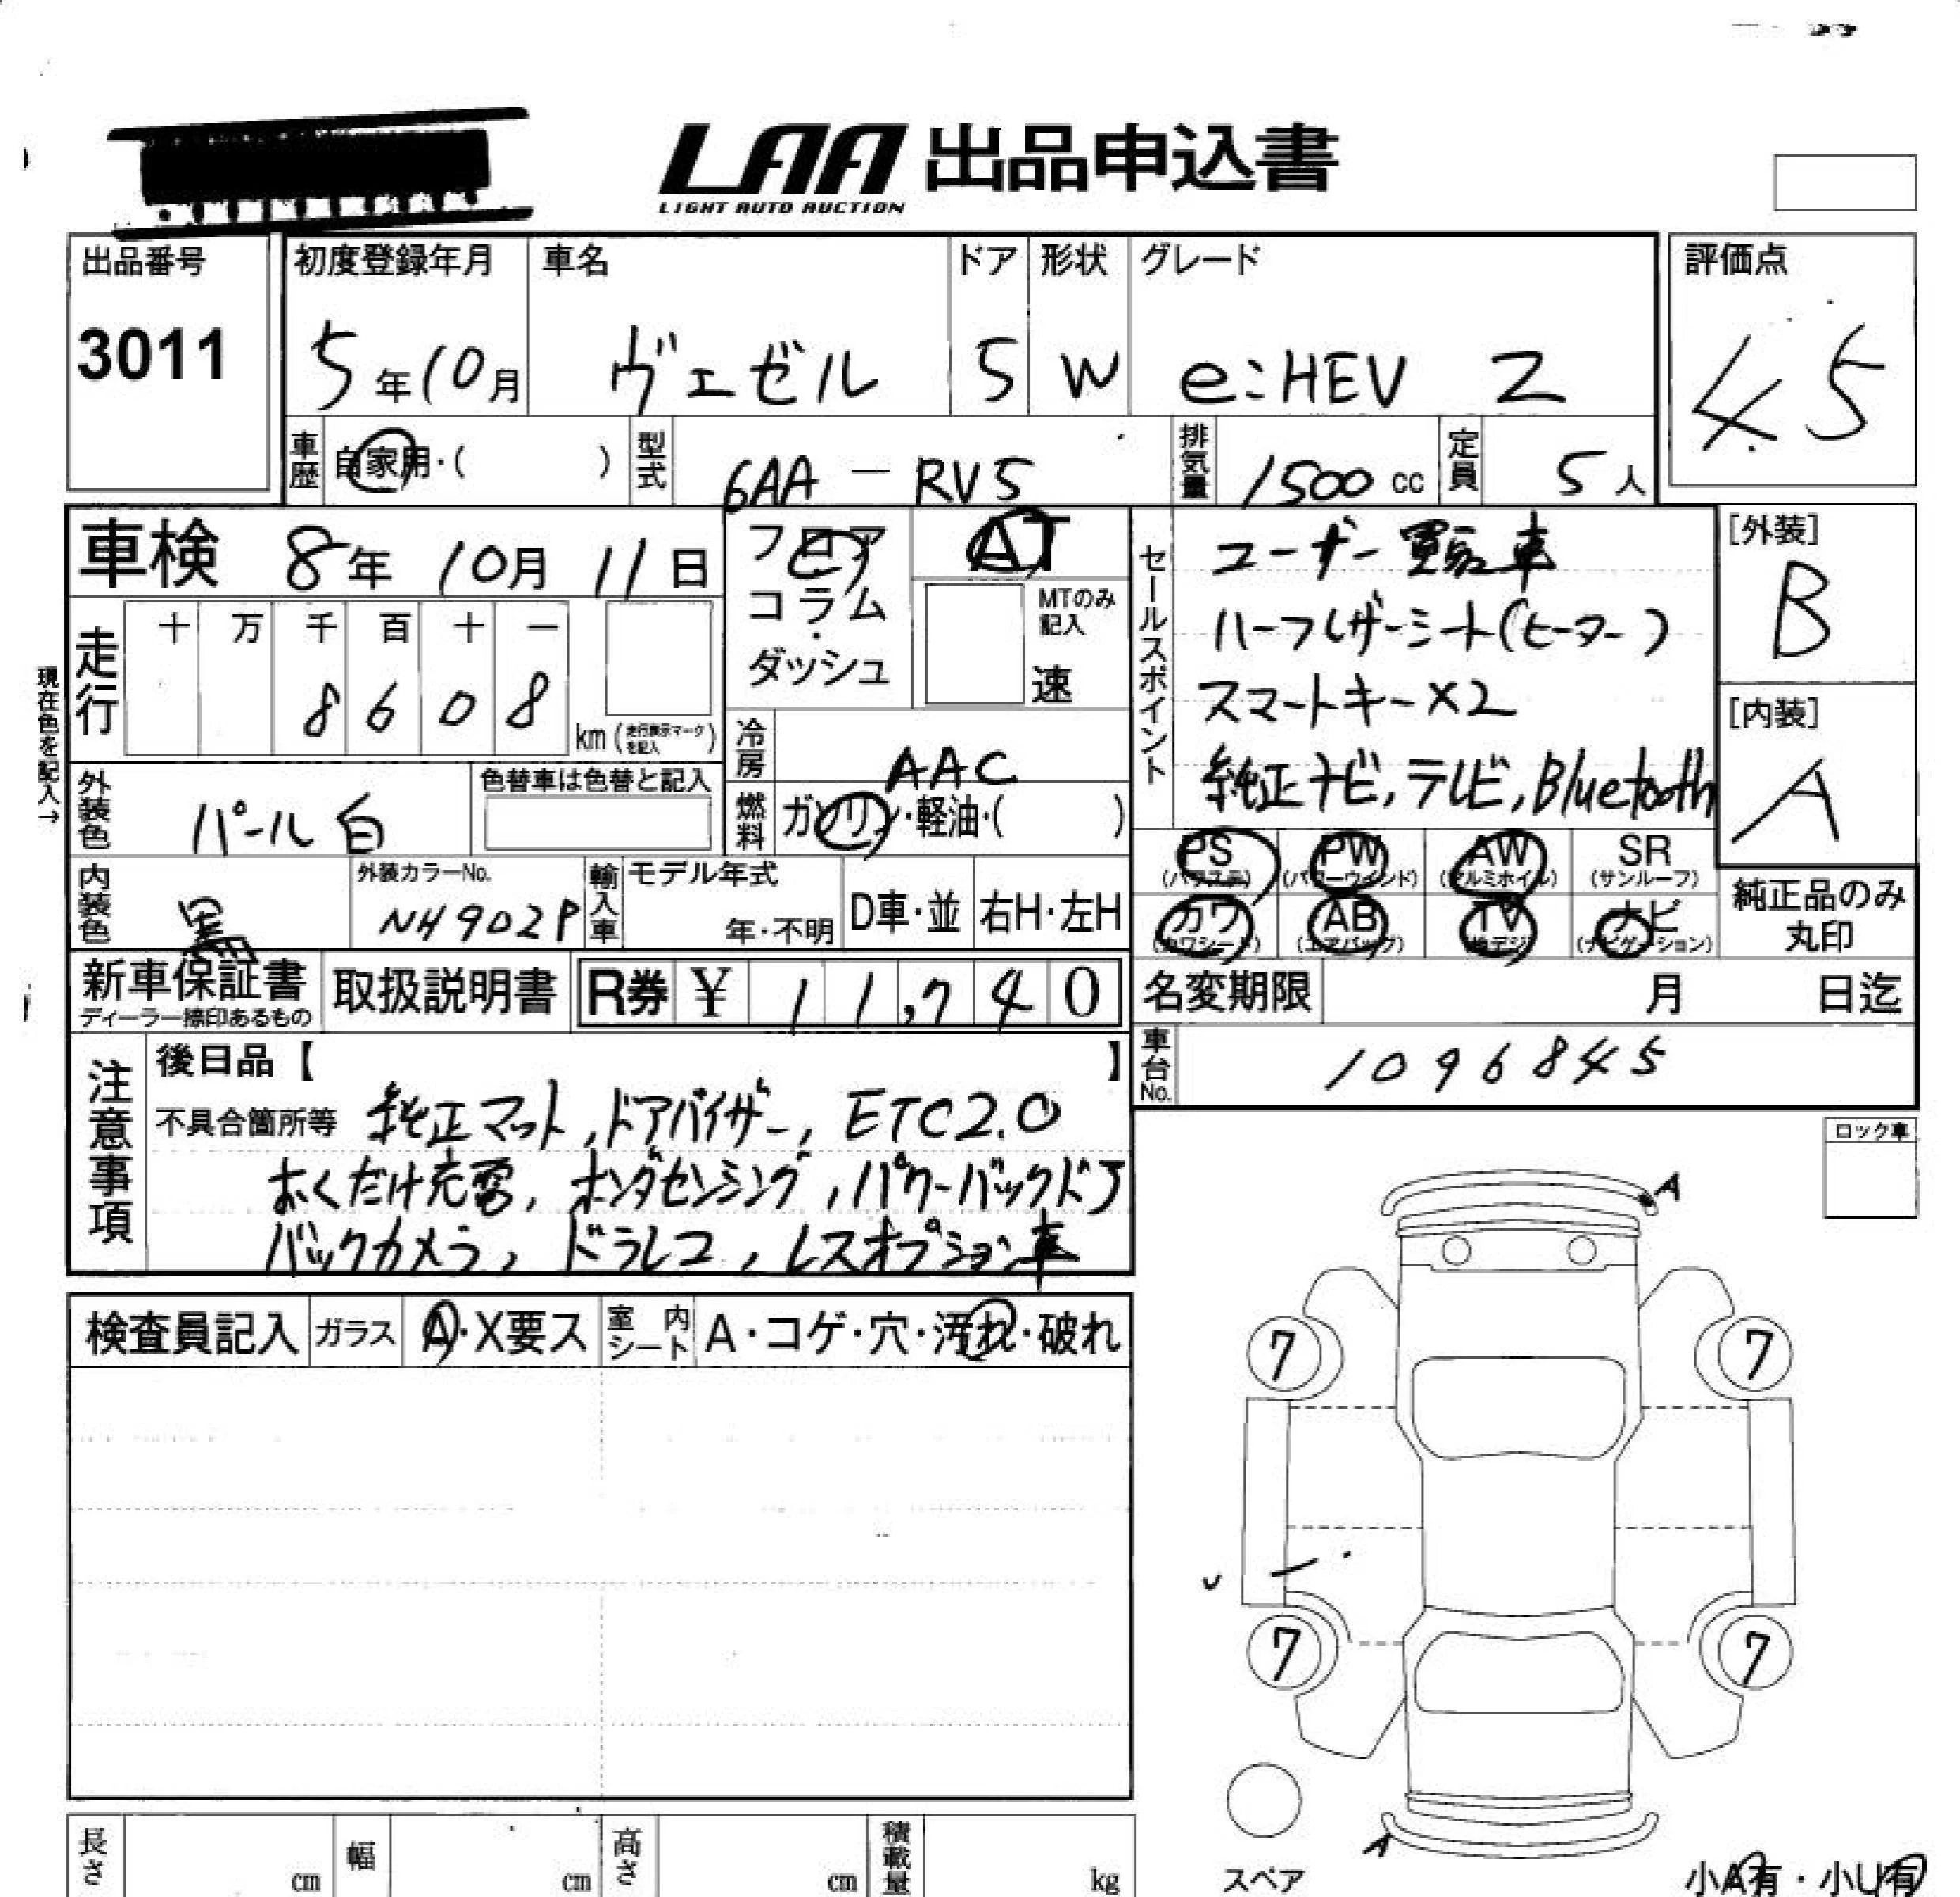 LAA 出品申込書
LIGHT AUTO AUCTION
出品番号 初度登録年月 車名 ドア 形状 グレード 評価点
3011 5年10月 ヴェゼル 5 W e:HEV Z 4.5
車歴 自家用・( ) 型式 6AA-RV5 排気量 1500cc 定員 5人
車検 8年10月11日 フロア AT
コラム・ダッシュ MTのみ記入 速
セールスポイント ユーザー買取車
ハーフレザーシート(ヒーター)
スマートキー×2
純正ナビ,テレビ,Bluetooth
[外装] B
[内装] A
走行 十 万 千 百 十 一
8 6 0 8 km(走行表示マークを記入)
現在色を記入→
冷房 AAC
外装色 パール白 色替車は色替と記入 燃料 ガソリン・軽油・( )
PS (パワステ) PW (パワーウインド) AW (アルミホイル) SR (サンルーフ)
カワ (カワシート) AB (エアバッグ) TV (地デジ) ナビ (ナビゲーション)
純正品のみ丸印
内装色 黒 外装カラーNo. NH902P 輸入車 モデル年式 年・不明 D車・並 右H・左H
新車保証書 ディーラー捺印あるもの 取扱説明書 R券 ¥ 11,740 名変期限 月 日迄
車台No. 1096845
注意事項 後日品【 】
不具合箇所等 純正マット,ドアバイザー,ETC2.0
おくだけ充電,ホンダセンシング,パワーバックドア
バックカメラ,ドラレコ,レスオプション車
ロック車
検査員記入 ガラス A・X要ス 室内シート A・コゲ・穴・汚れ・破れ
A
7 7
U
7 7
A
スペア
小A有・小U有
長さ cm 幅 cm 高さ cm 積載量 kg